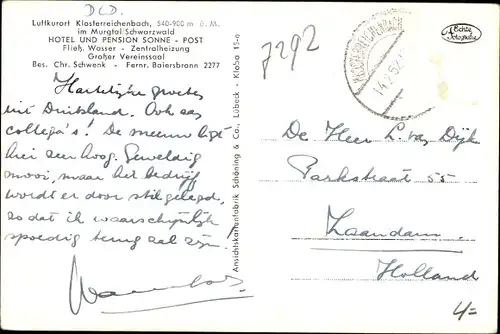 D.C.D.
Luftkurort Klosterreichenbach, 540-900 m ü. M.
im Murgtal/Schwarzwald
HOTEL UND PENSION SONNE - POST
Fließ. Wasser - Zentralheizung
Großer Vereinssaal
Bes. Chr. Schwenk - Fernr. Baiersbronn 2277
Hartelijke groeten
uit Duitsland. Ook aan
collega's! De sneeuw ligt
hier zeer hoog. Geweldig
mooi, maar het bedrijf
wordt er door stil gelegd,
zo dat ik waarschijnlijk
spoedig terug zal zijn.
Ansichtskartenfabrik Schöning & Co., Lübeck - Kloba 15-e
7292
KLOSTERREICHENBACH
14.2.52
Echte
Fotografie
De Heer L. van Dijk
Parkstraat 55
Zaandam
Holland
4=